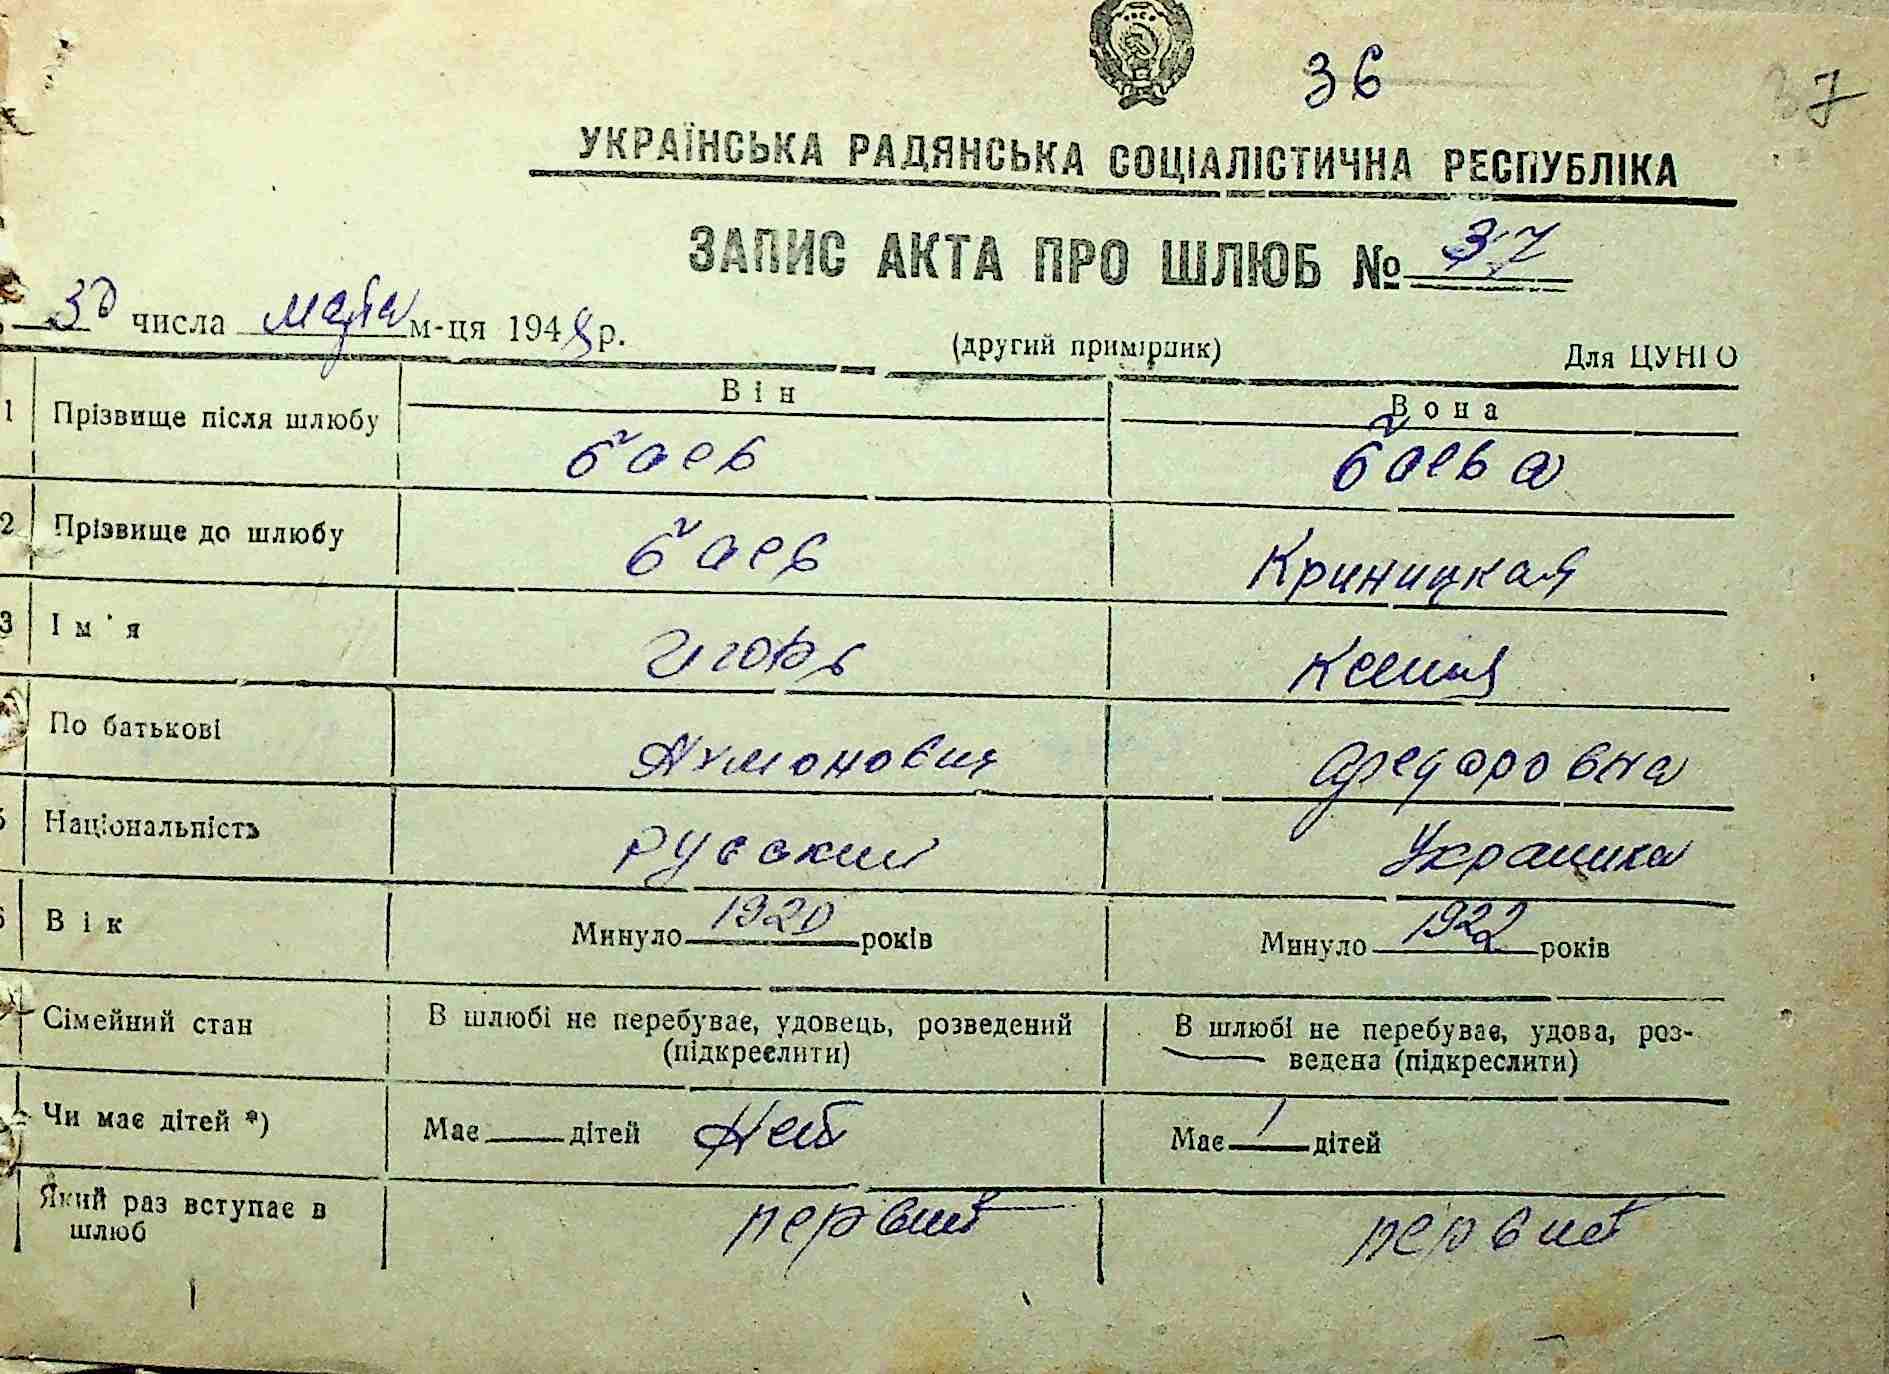 36
37
УКРАЇНСЬКА РАДЯНСЬКА СОЦІАЛІСТИЧНА РЕСПУБЛІКА
ЗАПИС АКТА ПРО ШЛЮБ № 37
30 числа марта м-ця 194 р.
(другий примірник) Для ЦУНГО
Він Вона
1 Прізвище після шлюбу Баев Баева
2 Прізвище до шлюбу Баев Криницкая
3 Ім'я Игорь Ксения
По батькові Федоровна
Національність русский Украинка
Вік Минуло 1920 років Минуло 1922 років
Сімейний стан В шлюбі не перебуває, удовець, розведений В шлюбі не перебуває, удова, роз-
(підкреслити) ведена (підкреслити)
Чи має дітей *) Має дітей Нет Має 1 дітей
Який раз вступає в первый первый
шлюб